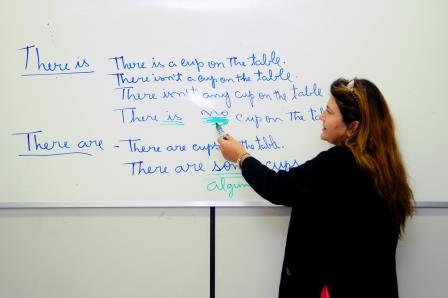 There is There is a cup on the table.
There isn't a cup on the table.
There isn't any cup on the table
There is no cup on the
There are - There are cups the table.
There are cups